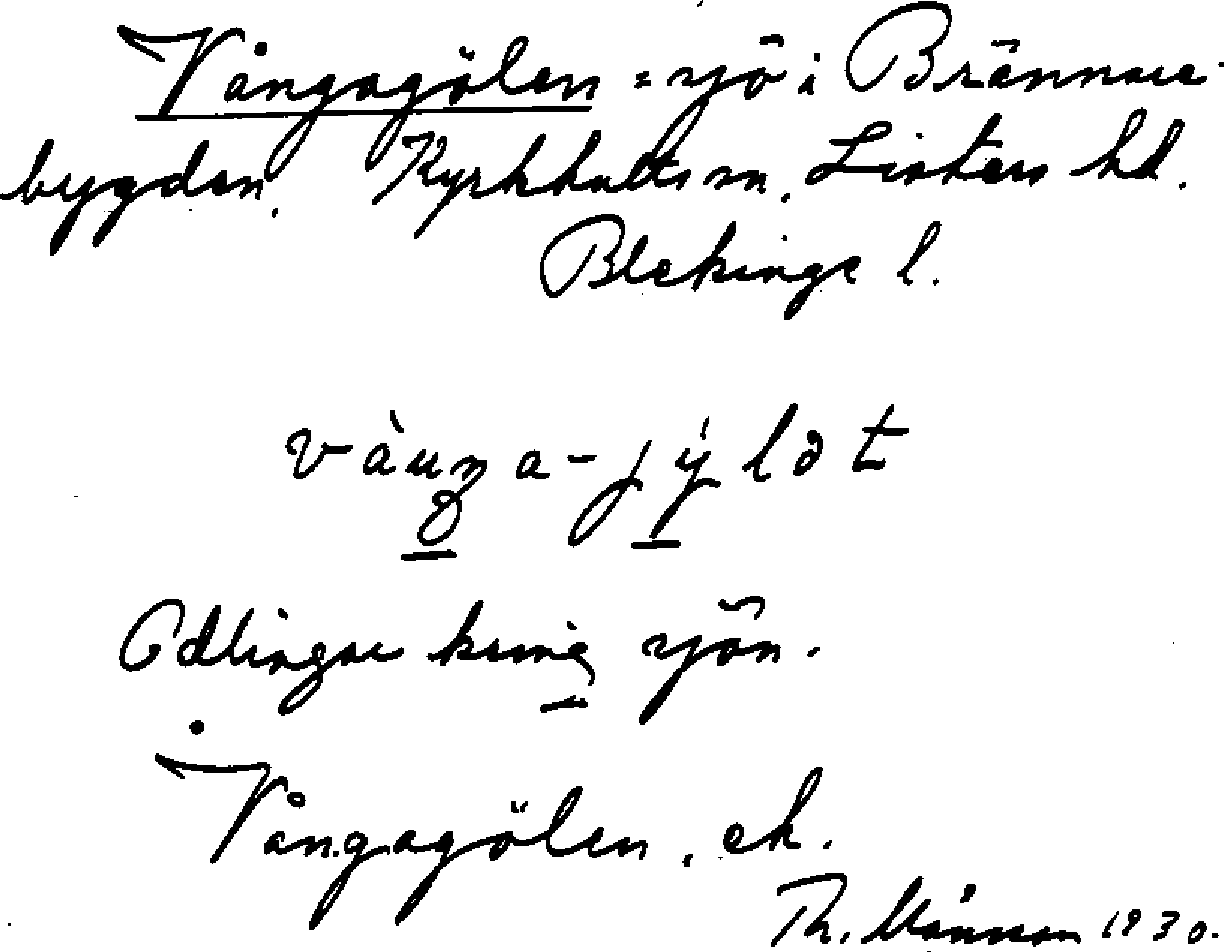 Vångagölen = sjö i Brännare-
bygden, Kyrkhults sn, Listers hd.
Blekinge l.
vàuŋa-jýlət
Odlingar kring sjön.
Vångagölen, ek.
Th. Månsson 1930.